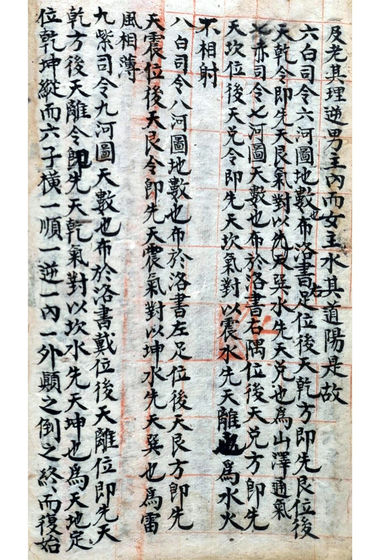 及老其理逆男主內而女主水其道陽是故
六白司令六河圖地數也布於洛書右足位後天乾方即先艮位後
天乾令即先天艮氣對以先天巽水先天兌也為山澤通氣
七赤司令七河圖天數也布於洛書右隅位後天兌方即先
天坎位後天兌令即先天坎氣對以震水先天離也為水火
不相射
八白司令八河圖地數也布於洛書左足位後天艮方即先
天震位後天艮令即先天震氣對以坤水先天巽也為雷
風相薄
九紫司令九河圖天數也布於洛書戴位後天離位即先天
乾方後天離令即先天乾氣對以坎水先天坤也為天地定
位乾坤縱而六子橫一順一逆一內一外顛之倒之終而復始